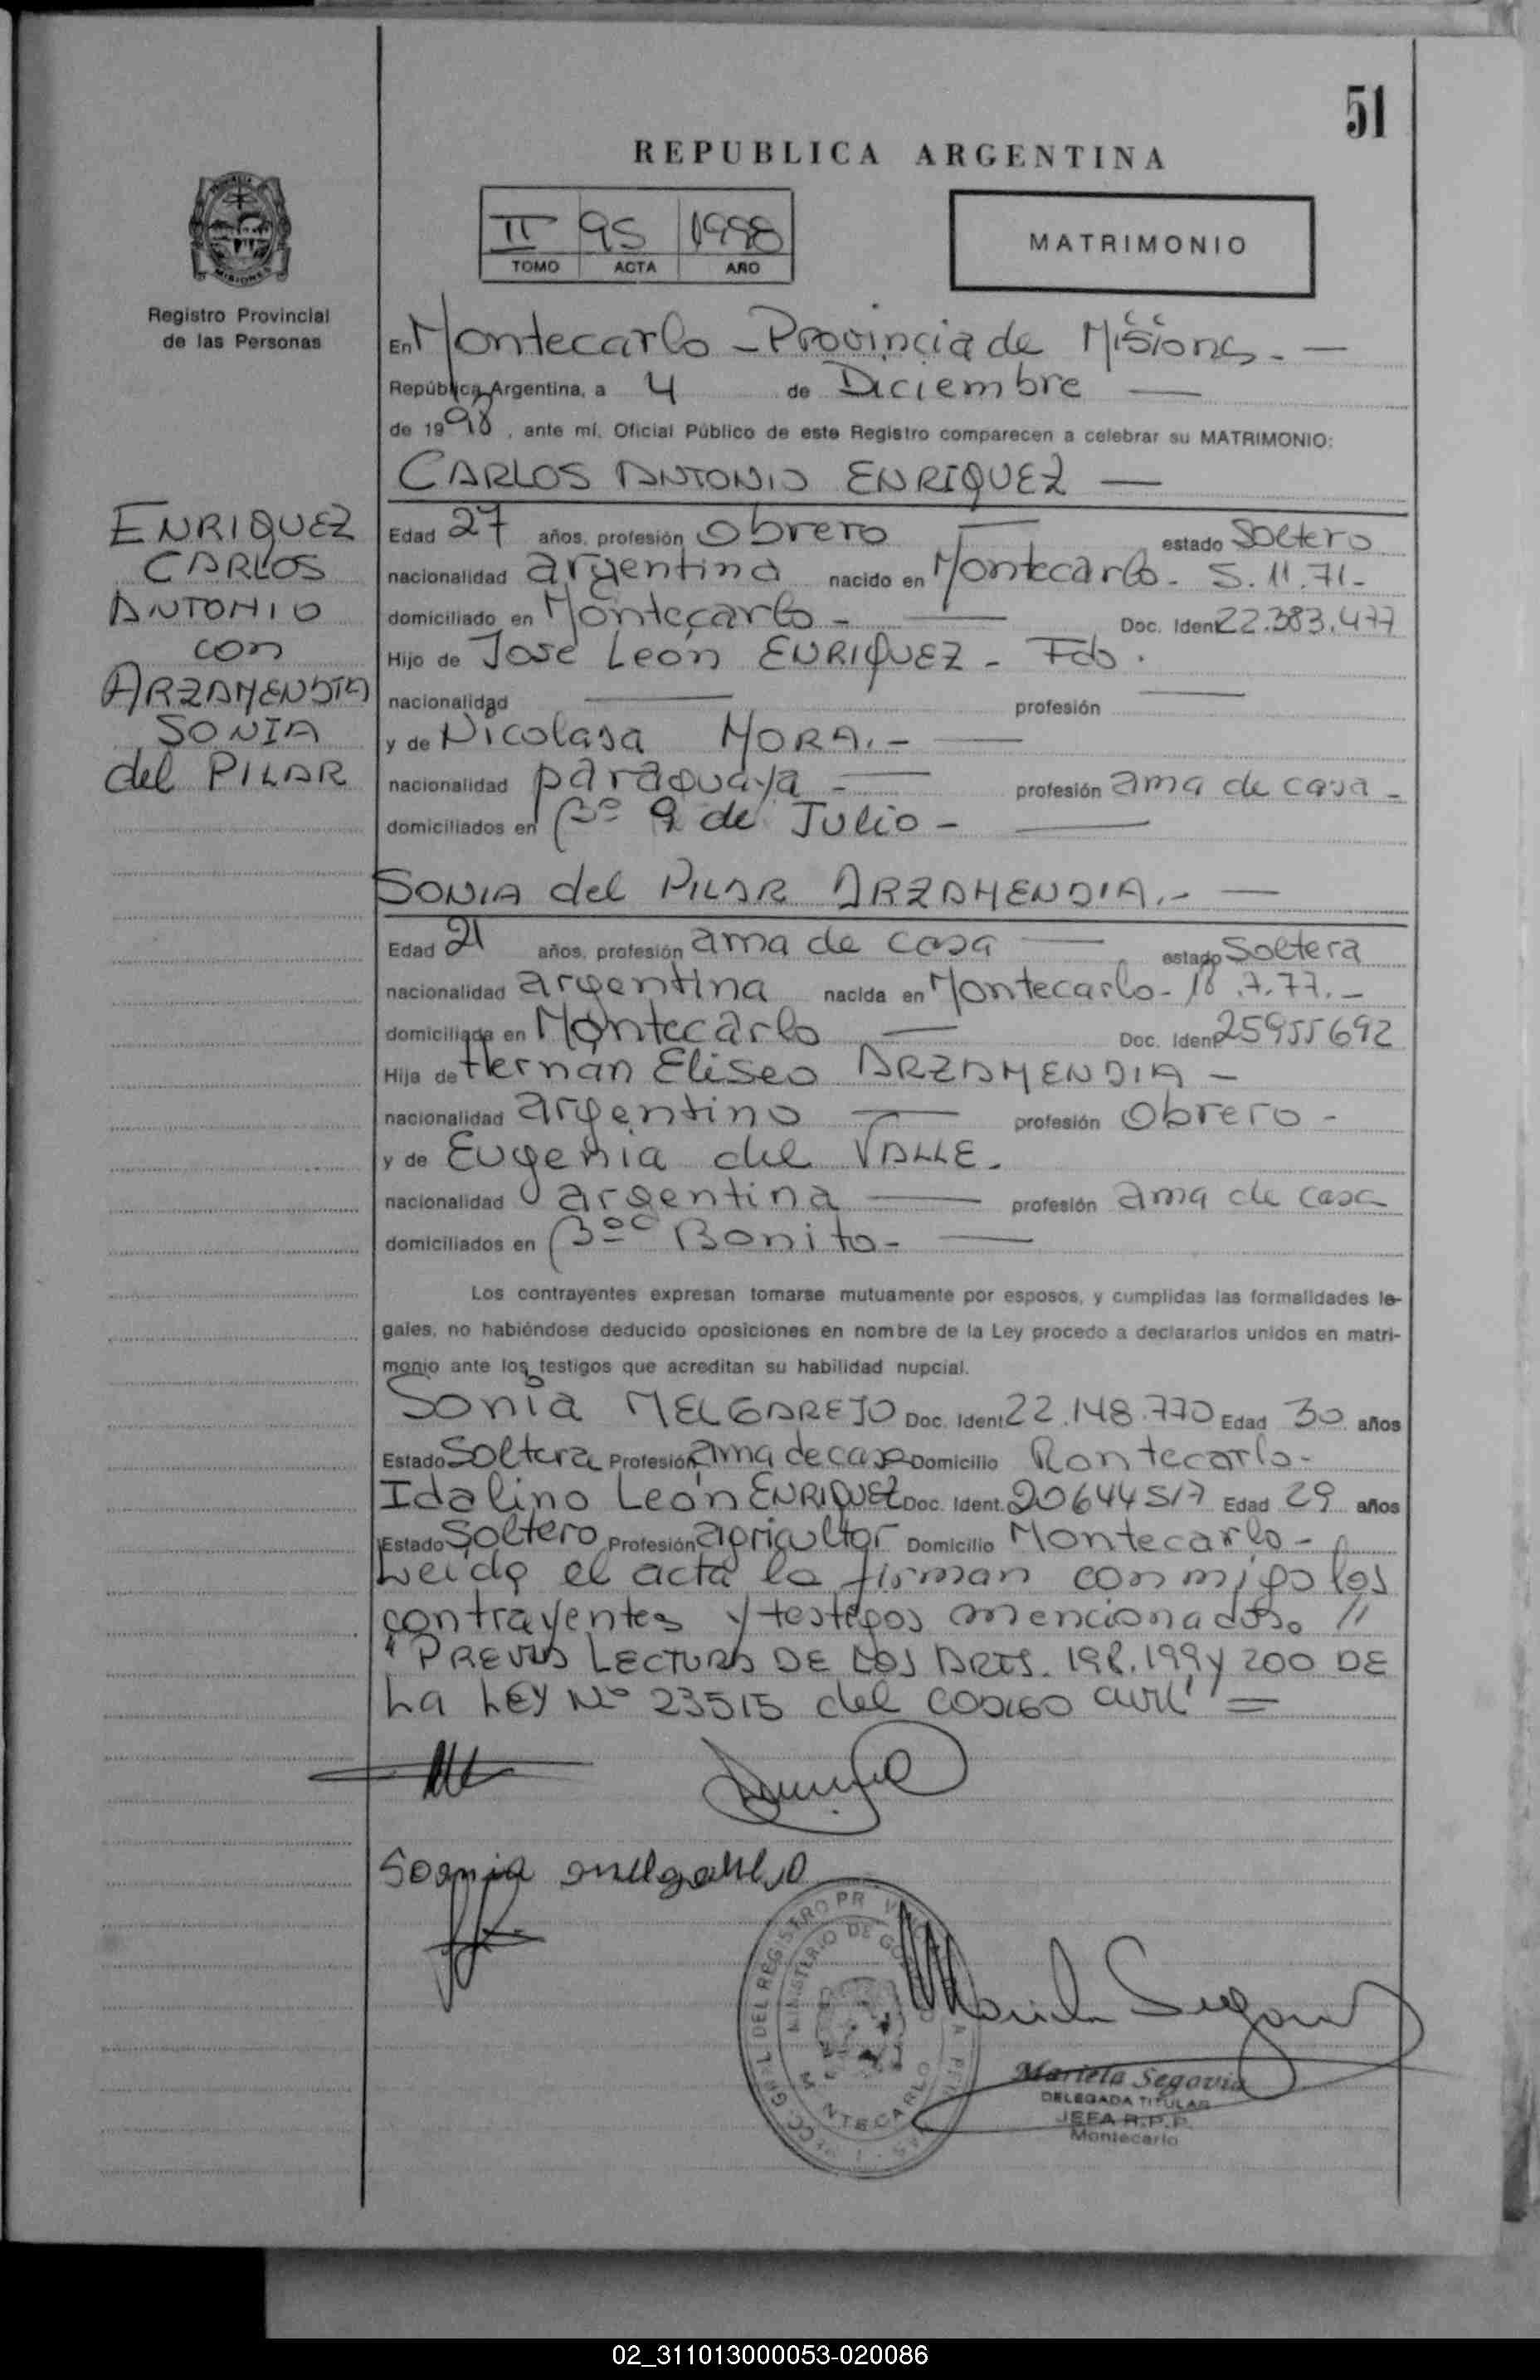 51
REPUBLICA ARGENTINA
II 95 1998
TOMO ACTA AÑO
MATRIMONIO
PROVINCIA
MISIONES
Registro Provincial
de las Personas
ENRIQUEZ
CARLOS
ANTONIO
con
ARZAMENDIA
SONIA
del PILAR
En Montecarlo - Provincia de Misiones. —
República Argentina, a 4 de Diciembre —
de 1998, ante mí, Oficial Público de este Registro comparecen a celebrar su MATRIMONIO:
CARLOS ANTONIO ENRIQUEZ —
Edad 27 años, profesión Obrero — estado Soltero
nacionalidad argentina nacido en Montecarlo - 5.11.71-
domiciliado en Montecarlo - — Doc. Ident 22.383.477
Hijo de José León ENRIQUEZ - Fdo.
nacionalidad — profesión —
y de Nicolasa MORA.- —
nacionalidad paraguaya - — profesión ama de casa -
domiciliados en Bº 9 de Julio - —
SONIA del PILAR ARZAMENDIA.- —
Edad 21 años, profesión ama de casa — estado Soltera
nacionalidad argentina nacida en Montecarlo - 18.7.77.-
domiciliada en Montecarlo — Doc. Ident 25955692
Hija de Hernan Eliseo ARZAMENDIA -
nacionalidad argentino — profesión Obrero -
y de Eugenia del VALLE.
nacionalidad argentina — profesión ama de casa
domiciliados en Bº Bonito - —
Los contrayentes expresan tomarse mutuamente por esposos, y cumplidas las formalidades le-
gales, no habiéndose deducido oposiciones en nombre de la Ley procedo a declararlos unidos en matri-
monio ante los testigos que acreditan su habilidad nupcial.
Sonia MELGAREJO Doc. Ident 22.148.770 Edad 30 años
Estado Soltera Profesión ama de casa Domicilio Montecarlo-
Idalino León ENRIQUEZ Doc. Ident. 20644517 Edad 29 años
Estado Soltero Profesión agricultor Domicilio Montecarlo -
Leida el acta la firman conmigo los
contrayentes y testigos mencionados. //
"PREVIAS LECTURAS DE LOS ARTS. 198.199 y 200 DE
La LEY Nº 23515 del CODIGO civil" =
MINISTERIO DE
MONTECARLO
Mariela Segovia
DELEGADA TITULAR
JEFA R.P.P.
Montecarlo
02_311013000053-020086